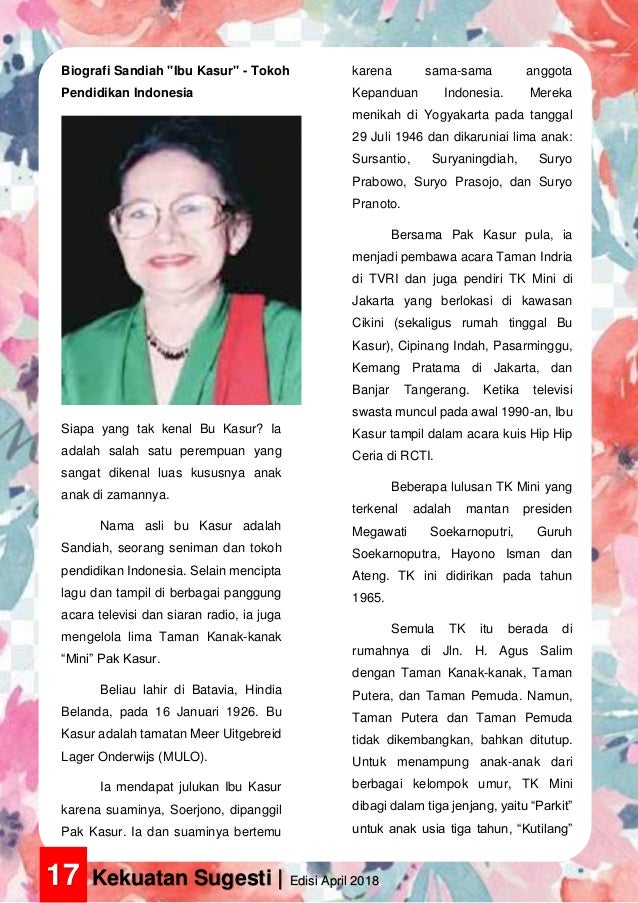 Biografi Sandiah "Ibu Kasur" - Tokoh
Pendidikan Indonesia
Siapa yang tak kenal Bu Kasur? Ia
adalah salah satu perempuan yang
sangat dikenal luas kususnya anak
anak di zamannya.
Nama asli bu Kasur adalah
Sandiah, seorang seniman dan tokoh
pendidikan Indonesia. Selain mencipta
lagu dan tampil di berbagai panggung
acara televisi dan siaran radio, ia juga
mengelola lima Taman Kanak-kanak
“Mini” Pak Kasur.
Beliau lahir di Batavia, Hindia
Belanda, pada 16 Januari 1926. Bu
Kasur adalah tamatan Meer Uitgebreid
Lager Onderwijs (MULO).
Ia mendapat julukan Ibu Kasur
karena suaminya, Soerjono, dipanggil
Pak Kasur. Ia dan suaminya bertemu
karena sama-sama anggota
Kepanduan Indonesia. Mereka
menikah di Yogyakarta pada tanggal
29 Juli 1946 dan dikaruniai lima anak:
Sursantio, Suryaningdiah, Suryo
Prabowo, Suryo Prasojo, dan Suryo
Pranoto.
Bersama Pak Kasur pula, ia
menjadi pembawa acara Taman Indria
di TVRI dan juga pendiri TK Mini di
Jakarta yang berlokasi di kawasan
Cikini (sekaligus rumah tinggal Bu
Kasur), Cipinang Indah, Pasarminggu,
Kemang Pratama di Jakarta, dan
Banjar Tangerang. Ketika televisi
swasta muncul pada awal 1990-an, Ibu
Kasur tampil dalam acara kuis Hip Hip
Ceria di RCTI.
Beberapa lulusan TK Mini yang
terkenal adalah mantan presiden
Megawati Soekarnoputri, Guruh
Soekarnoputra, Hayono Isman dan
Ateng. TK ini didirikan pada tahun
1965.
Semula TK itu berada di
rumahnya di Jln. H. Agus Salim
dengan Taman Kanak-kanak, Taman
Putera, dan Taman Pemuda. Namun,
Taman Putera dan Taman Pemuda
tidak dikembangkan, bahkan ditutup.
Untuk menampung anak-anak dari
berbagai kelompok umur, TK Mini
dibagi dalam tiga jenjang, yaitu “Parkit”
untuk anak usia tiga tahun, “Kutilang”
17 Kekuatan Sugesti | Edisi April 2018